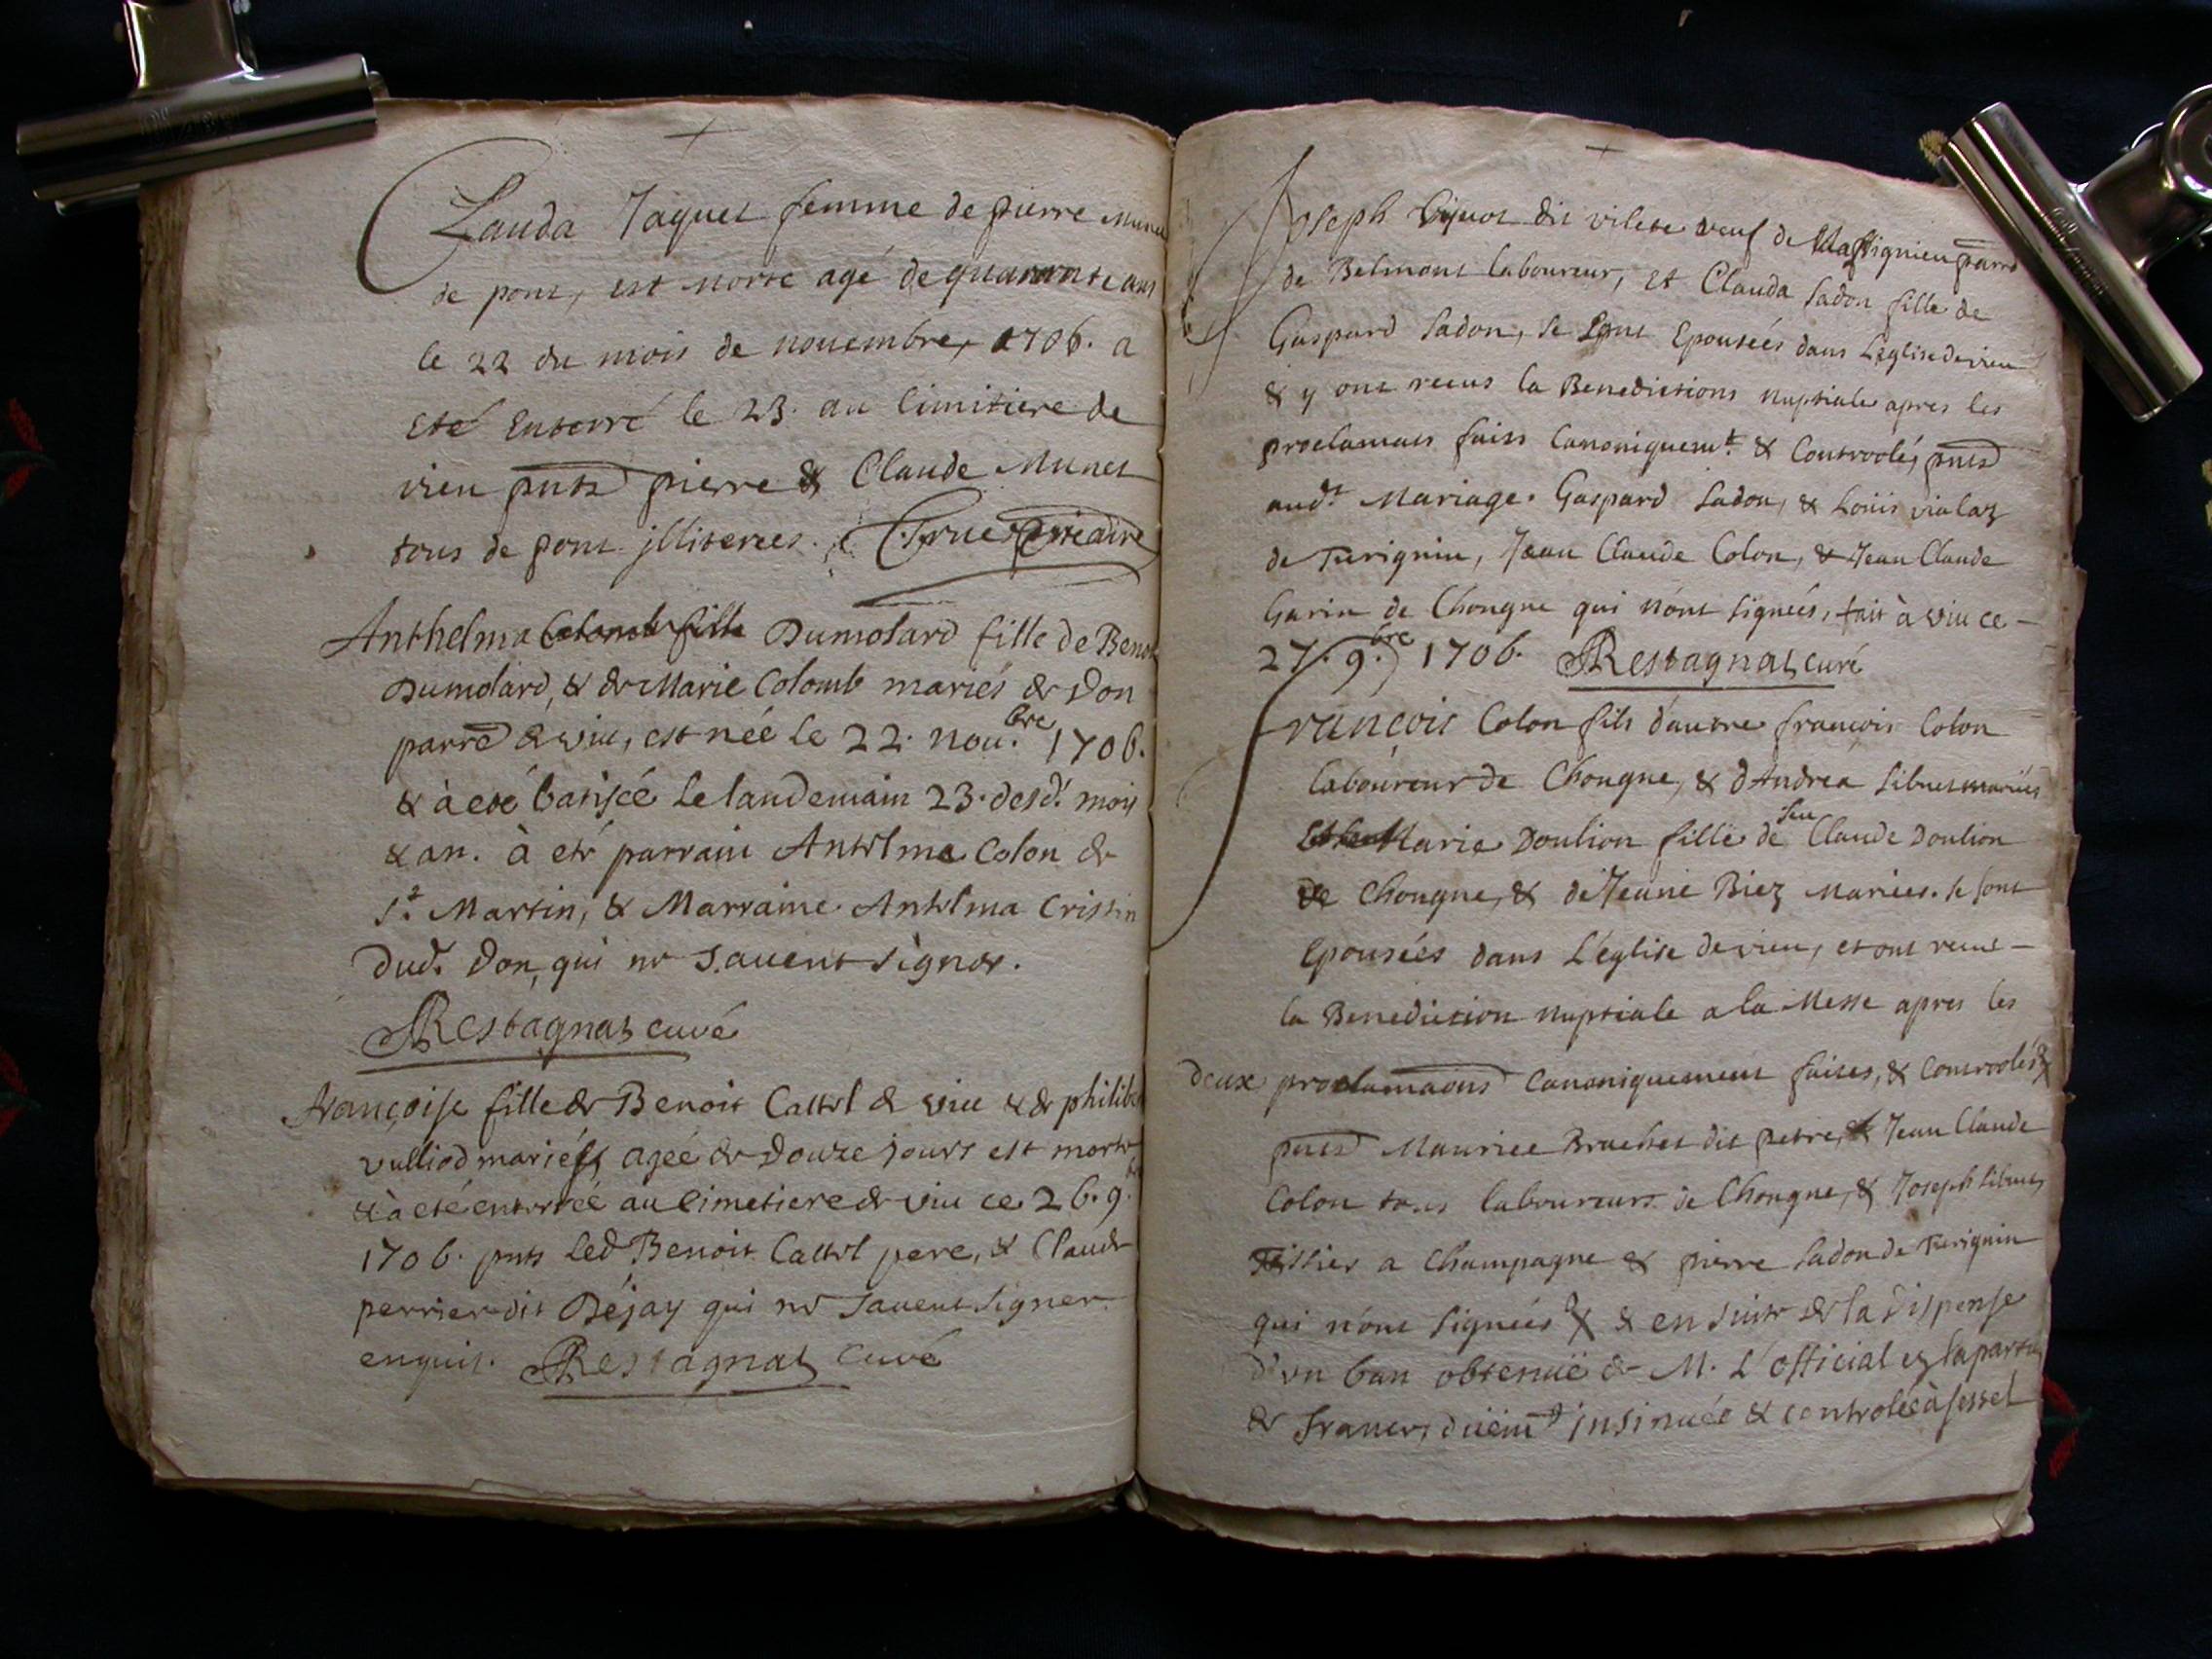 Clauda Jaquet femme de pierre Munet
de pont, est morte agé de quarante ans
le 22 du mois de nouembre, 1706. a
eté Enterré le 23. au Cimitiere de
vieu pnts pierre & Claude Munet
tous de pont jlliterees.
Anthelma Dumolard fille de Benoit
Dumolard, & de Marie Colomb mariés de Don
parre de viu, est née le 22. nou.bre 1706.
& à eté batisée le landemain 23. desd. mois
& an. à eté parrain Antelme Colon de
St. Martin, & Marraine Antelma Cristin
dud. Don, qui ne sauent signer.
Restagnat curé
françoise fille de Benoit Cattel de viu & de philiber
vulliod mariés agée de Douze jours est morte
& à eté enterrée au Cimetiere de viu ce 26. 9.bre
1706. pnts led Benoit Cattel pere, & Claude
perrier dit Déjay qui ne sauent signer
enquis. Restagnat curé
Joseph dit vilete veuf de Massignieu parre
de Belmont laboureur, et Clauda Sadon fille de
Gaspard Sadon, se sont Epousées dans L'eglise de vieu
& y ont receus la Benedictions nuptiale apres les
proclamaõns faits Canoniquemt. & Controolé, pnts
audt. Mariage. Gaspard Sadon, & Loüis vialaz
de Turignin, Jean Claude Colon, & Jean Claude
Garin de Chongne qui nónt signeés, fait à viu ce -
27. 9.bre 1706. Restagnat curé
François Colon fils dautre françois Colon
laboureur de Chongne, & d'Andrea Sibuet mariés
Marie Doulion fille de feu Claude Doulion
de Chongne, & de Jeane Biez Mariees. se sont
Epousées dans L'église de vieu, et ont receu -
la Benediction nuptiale a la Messe apres les
deux proclamaons Canoniquement faites, & Controolés
pnts Maurice Brachet dit petre, & Jean Claude
Colon tous laboureurs de Chongne, & Joseph Sibuet
Tissier a Champagne & pierre Sadon de Turignin
qui nónt signeés & en suite de la dispense
d'un ban obtenüe de M. L'official ez la partie
de France, düem̃t insinuée & controleé à sessel